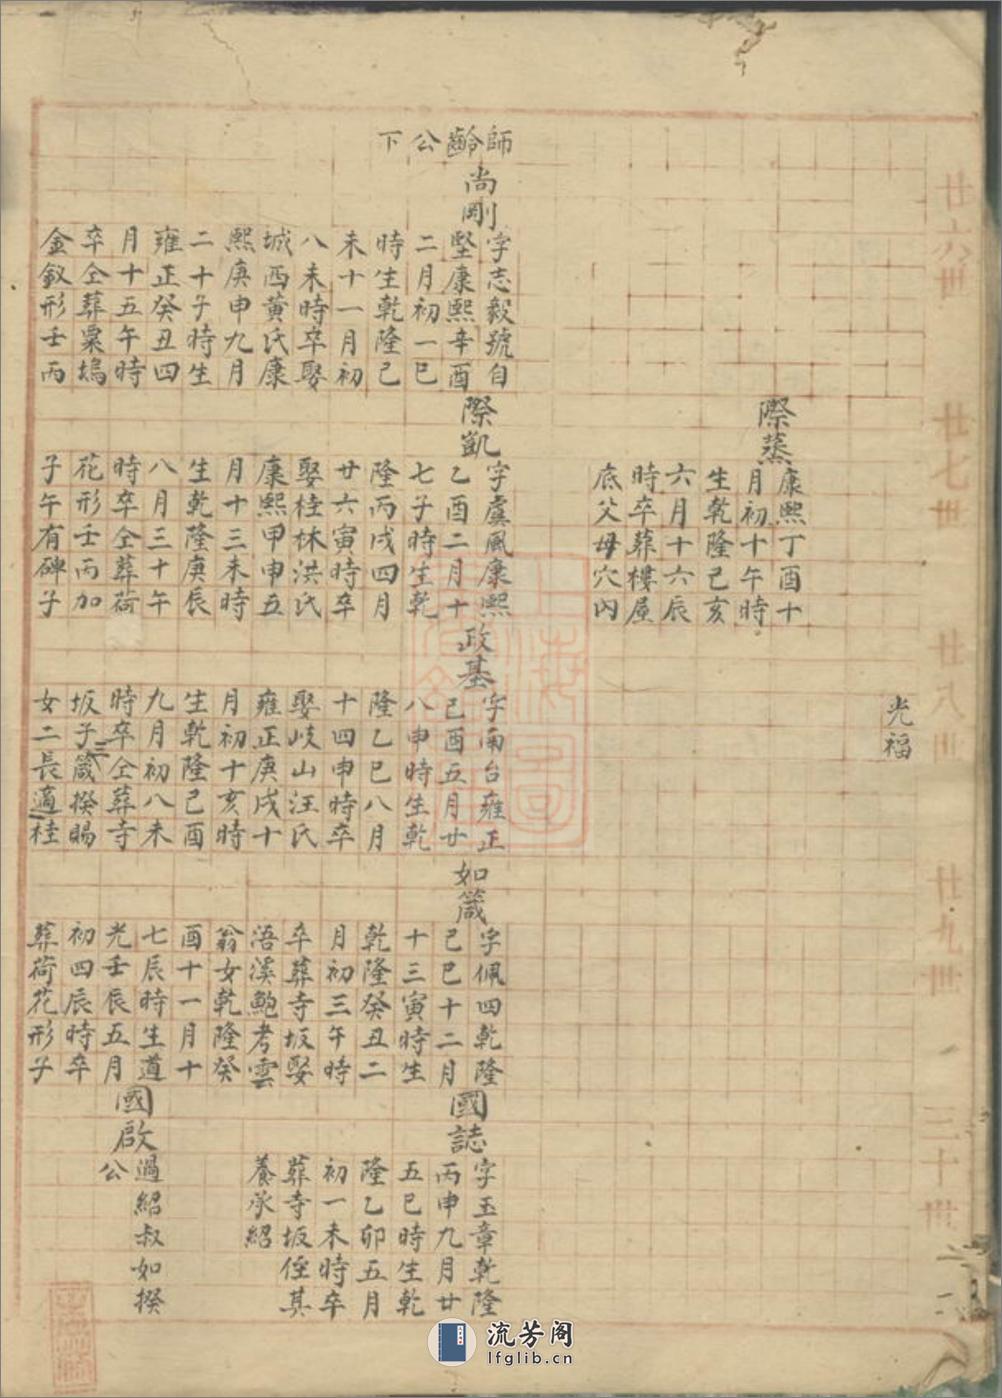 廿六世
廿七世
廿八世
廿九世
三十世
師齡公下
尚剛
字志毅號自
堅康熙辛酉
二月初一巳
時生乾隆己
未十一月初
八未時卒娶
城西黃氏康
熙庚申九月
二十子時生
雍正癸丑四
月十五午時
卒仝葬粟塢
金釵形壬丙
際蒸
康熙丁酉十
月初十午時
生乾隆己亥
六月十六辰
時卒葬樓屋
底父母穴內
際凱
字虞風康熙
乙酉二月十
七子時生乾
隆丙戌四月
廿六寅時卒
娶桂林洪氏
康熙甲申五
月十三未時
生乾隆庚辰
八月三十午
時卒仝葬荷
花形壬丙加
子午有碑子
光福
政基
字南台雍正
己酉五月廿
八申時生乾
隆乙巳八月
十四申時卒
娶岐山汪氏
雍正庚戌十
月初十亥時
生乾隆己酉
九月初八未
時卒仝葬寺
坂子三箴揆賜
女二長適桂
如箴
字佩四乾隆
己巳十二月
十三寅時生
乾隆癸丑二
月初三午時
卒葬寺坂娶
浯溪鮑考雲
翁女乾隆癸
酉十一月十
七辰時生道
光壬辰五月
初四辰時卒
葬荷花形子
國誌
字玉章乾隆
丙申九月廿
五巳時生乾
隆乙卯五月
初一未時卒
葬寺坂侄其
養承紹
國啟
過紹叔如揆
公
流芳阁
lfglib.cn